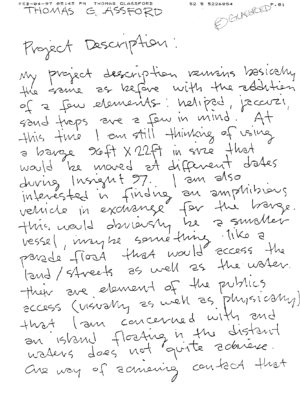 FEB-04-97 05:43 PM THOMAS GLASSFORD 52 5 5226954 P.01
THOMAS GLASSFORD
Project Description:
My project description remains basically
the same as before with the addition
of a few elements: helipad, jaccuzi,
sand traps are a few in mind. At
this time I am still thinking of using
a barge 96ft X 22ft in size that
would be moved at different dates
during Insight 97. I am also
interested in finding an amphibious
vehicle in exchange for the barge.
this would obviously be a smaller
vessel, maybe something like a
parade float that would access the
land/streets as well as the water.
their are element of the publics
access (visually as well as physically)
that I am concerned with and
an island floating in the distant
waters does not quite achieve.
One way of achieving contact that